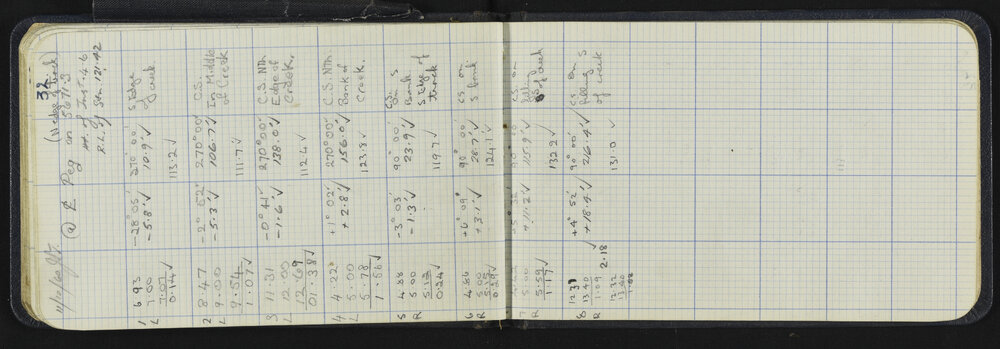 32
11/10/60
(N edge of track)
@ ₵ Peg on 5671.3
Ht. of Inst. 4.6
R.L. of Stn. 121.42
1 6.93 -28° 05' 270° 00' S Edge
L 7.00 -5.8'√ 10.9'√ of creek
7.07
0.14√ 113.2√
2 8.47 -2° 52' 270° 00' C.S.
L 9.00 -5.3'√ 106.7'√ In Middle
9.54 of Creek
1.07√ 111.7√
3 11.31 -0° 41' 270° 00' C.S. Nth.
L 12.00 -1.6'√ 138.0'√ Edge of
12.69 Creek.
01.38√ 112.4√
4 4.22 +1° 02' 270° 00' C.S. Nth.
L 5.00 +2.8'√ 156.0'√ Bank of
5.78 Creek.
1.56√ 123.8√
5 4.88 -3° 03' 90° 00' C.S. S
R 5.00 -1.3'√ 23.9'√ Bank
5.12 S Edge of
0.24√ 119.7√ track
6 4.86 +6° 09' 90° 00' CS on
R 5.00 +3.1'√ 28.7'√ S bank
5.15
0.29√ 124.1√
7 C.S. on
R 5.00 +11.2'√ 115.9'√ falling
5.59 of creek
1.17√ 132.2√
8 12.31 +4° 52' 90° 00' C.S. on
R 13.40 +18.4'√ 216.4'√ falling S
1.09 of creek
2.18√ 131.0√
12.32
13.40
1.08